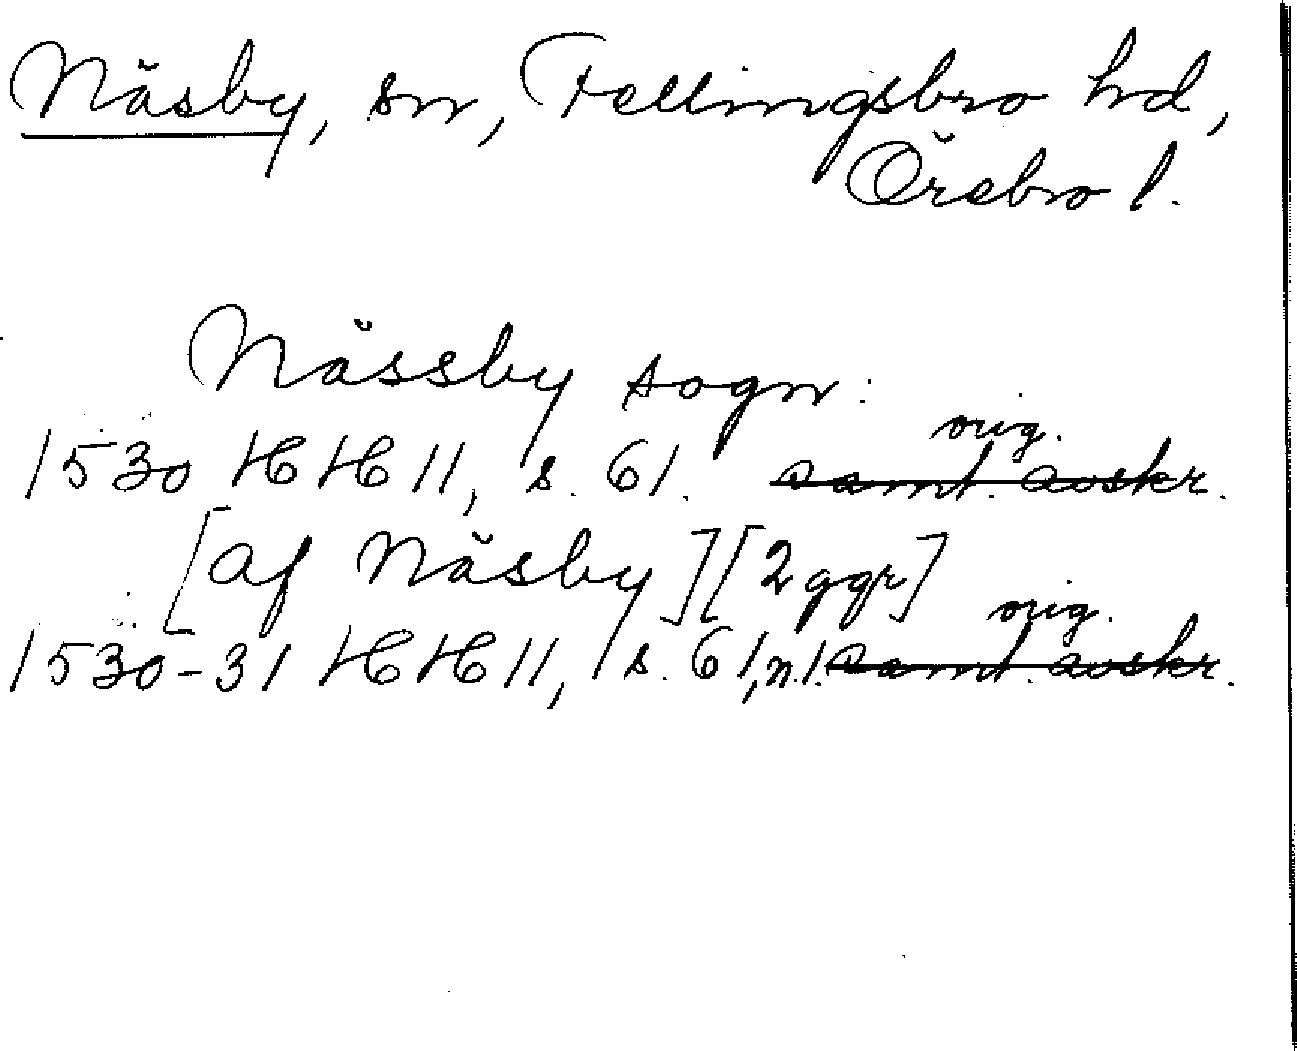 Näsby, sn, Fellingsbro hd,
Örebro l.
Nässby sogn:
orig.
1530 HH 11, s. 61. samt. avskr.
[af Näsby] [2 ggr]
orig.
1530-31 HH 11, s. 61, n.1. samt. avskr.